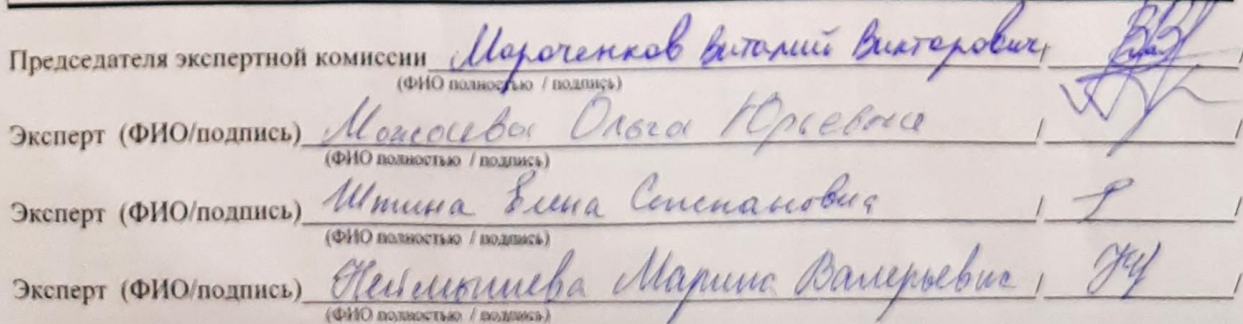 Председателя экспертной комиссии Мароченков Виталий Викторович /
(ФИО полностью / подпись)
Эксперт (ФИО/подпись) Ольга Юрьевна / /
(ФИО полностью / подпись)
Эксперт (ФИО/подпись) Штина Елена Степановна / /
(ФИО полностью / подпись)
Эксперт (ФИО/подпись) Неймышева Марина Валерьевна / /
(ФИО полностью / подпись)